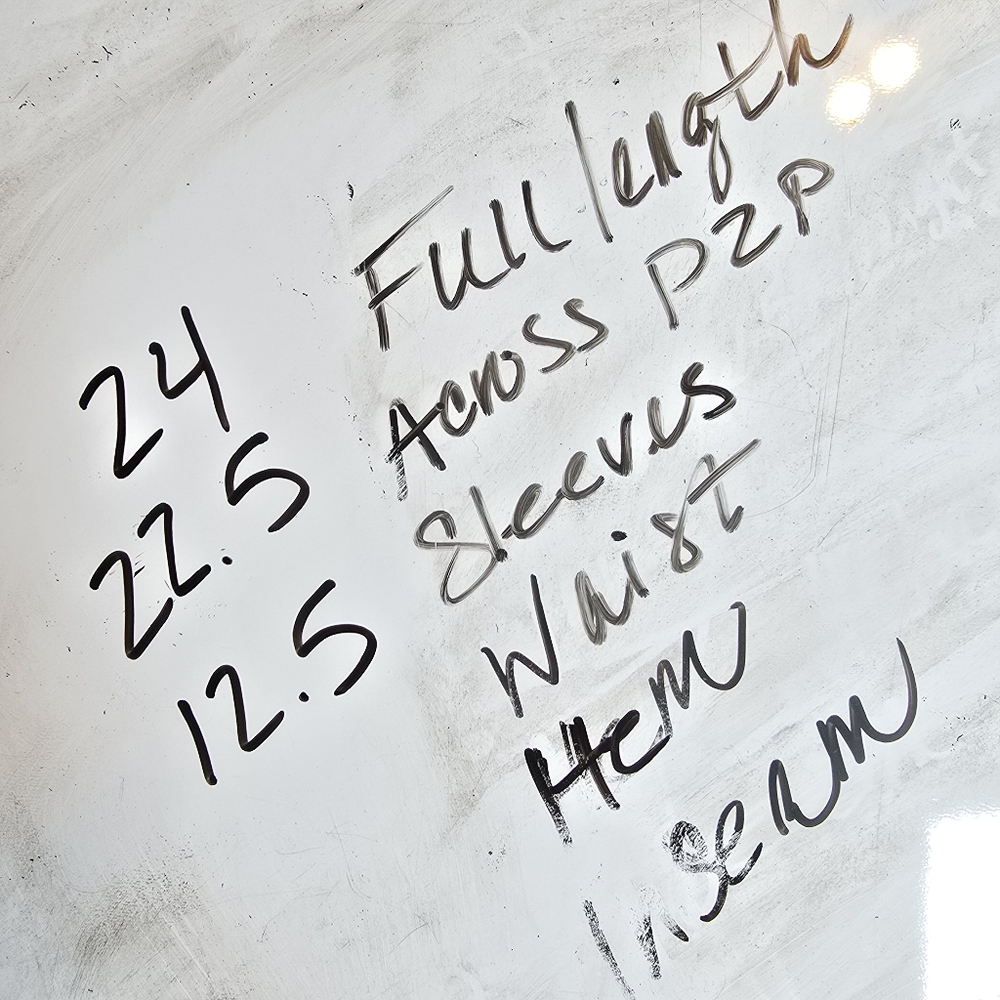 24 Full length
22.5 Across P2P
12.5 Sleeves
Waist
Hem
Inseam